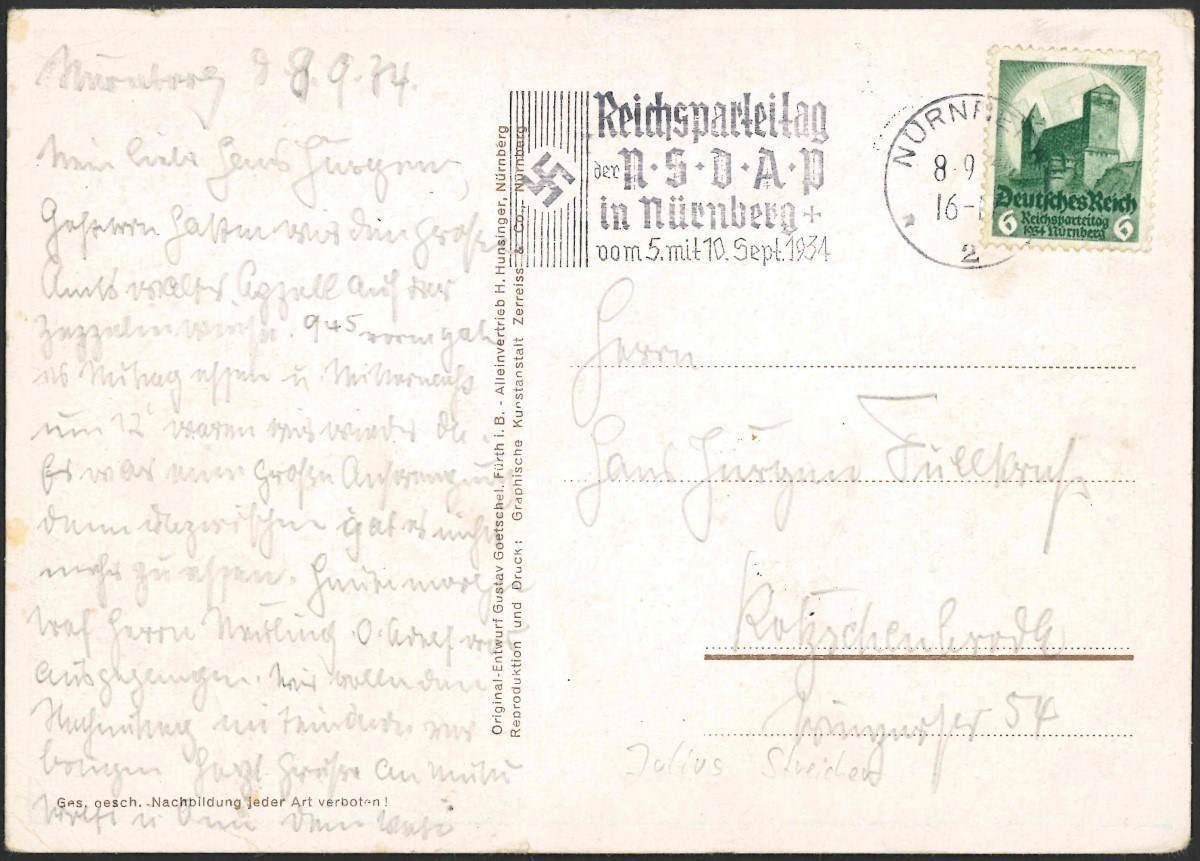 Nürnberg d. 8.9.34.
Mein lieber Hans Jürgen,
Gestern hatten wir den große
Amtswalter Appell auf der
Zeppelinwiese. 9 45 vorm gab
es Mittag essen u. Mitternacht
um 12 waren wir wieder da.
Es war eine große Anstrengung
denn dazwischen gab es nichts
mehr zu essen. Heute morgen
traf Herrn
ausgegangen. Wir wollen den
Nachmittag miteinander ver
bringen Herzl. Grüße an Mutti
u
Ges. gesch. -Nachbildung jeder Art verboten!
Original-Entwurf Gustav Goetschel, Fürth i. B. - Alleinvertrieb H. Hunsinger, Nürnberg
Reproduktion und Druck: Graphische Kunstanstalt Zerreiss & Co., Nürnberg
Reichsparteitag
der N·S·D·A·P
in Nürnberg +
vom 5. mit 10. Sept. 1934
NÜRNBE
8.9
16-1
2
Deutsches Reich
6 Reichsparteitag 6
1934 Nürnberg
Herrn
Hans Jürgen Füllkruß
Kötzschenbroda
54
Julius Streicher